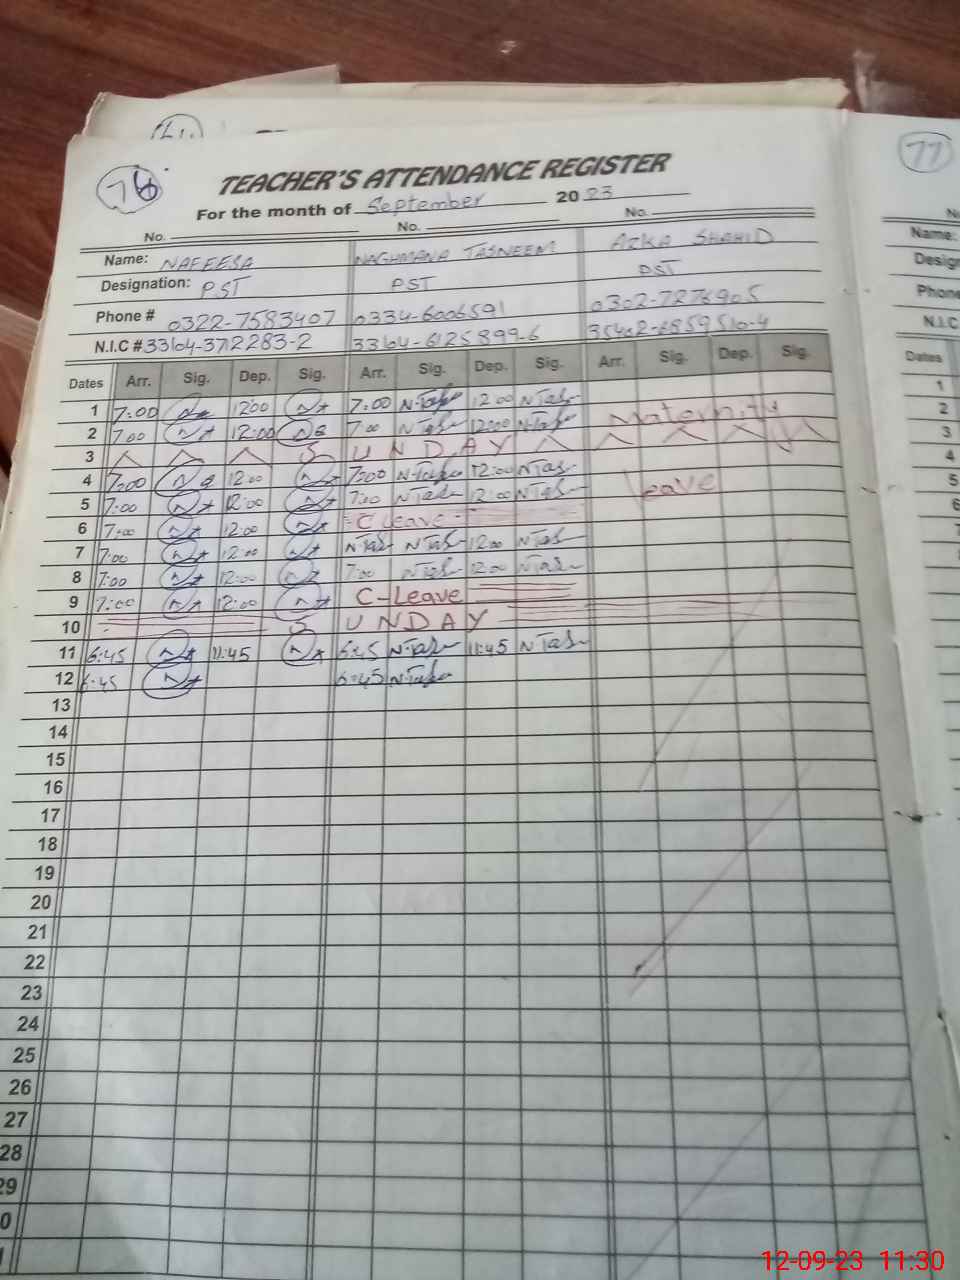 76
77
TEACHER'S ATTENDANCE REGISTER
For the month of September 2023
No. No. No.
Name: NAFEESA NAGHMANA TASNEEM AZKA SHAHID
Designation: PST PST PST
Phone # 0322-7583407 0334-6006591 0302-7276905
N.I.C # 33104-3712283-2 33104-6125899-6 35402-6859510-4
Dates Arr. Sig. Dep. Sig. Arr. Sig. Dep. Sig. Arr. Sig. Dep. Sig.
1 7:00 12:00 7:00 N-Tas 12:00 N-Tas
2 7:00 12:00 7:00 N-Tas 12:00 N-Tas Maternity
3 SUNDAY
4 7:00 12:00 7:00 N-Tas 12:00 N-Tas
5 7:00 12:00 7:00 N-Tas 12:00 N-Tas Leave
6 7:00 12:00 C Leave
7 7:00 12:00 N-Tas N-Tas 12:00 N-Tas
8 7:00 12:00 7:00 N-Tas 12:00 N-Tas
9 7:00 12:00 C-Leave
10 SUNDAY
11 6:45 11:45 6:45 N-Tas 11:45 N-Tas
12 6:45 6:45 N-Tas
13
14
15
16
17
18
19
20
21
22
23
24
25
26
27
28
29
0
Name:
Phone
N.I.C
Dates
1
2
3
4
5
6
12-09-23 11:30